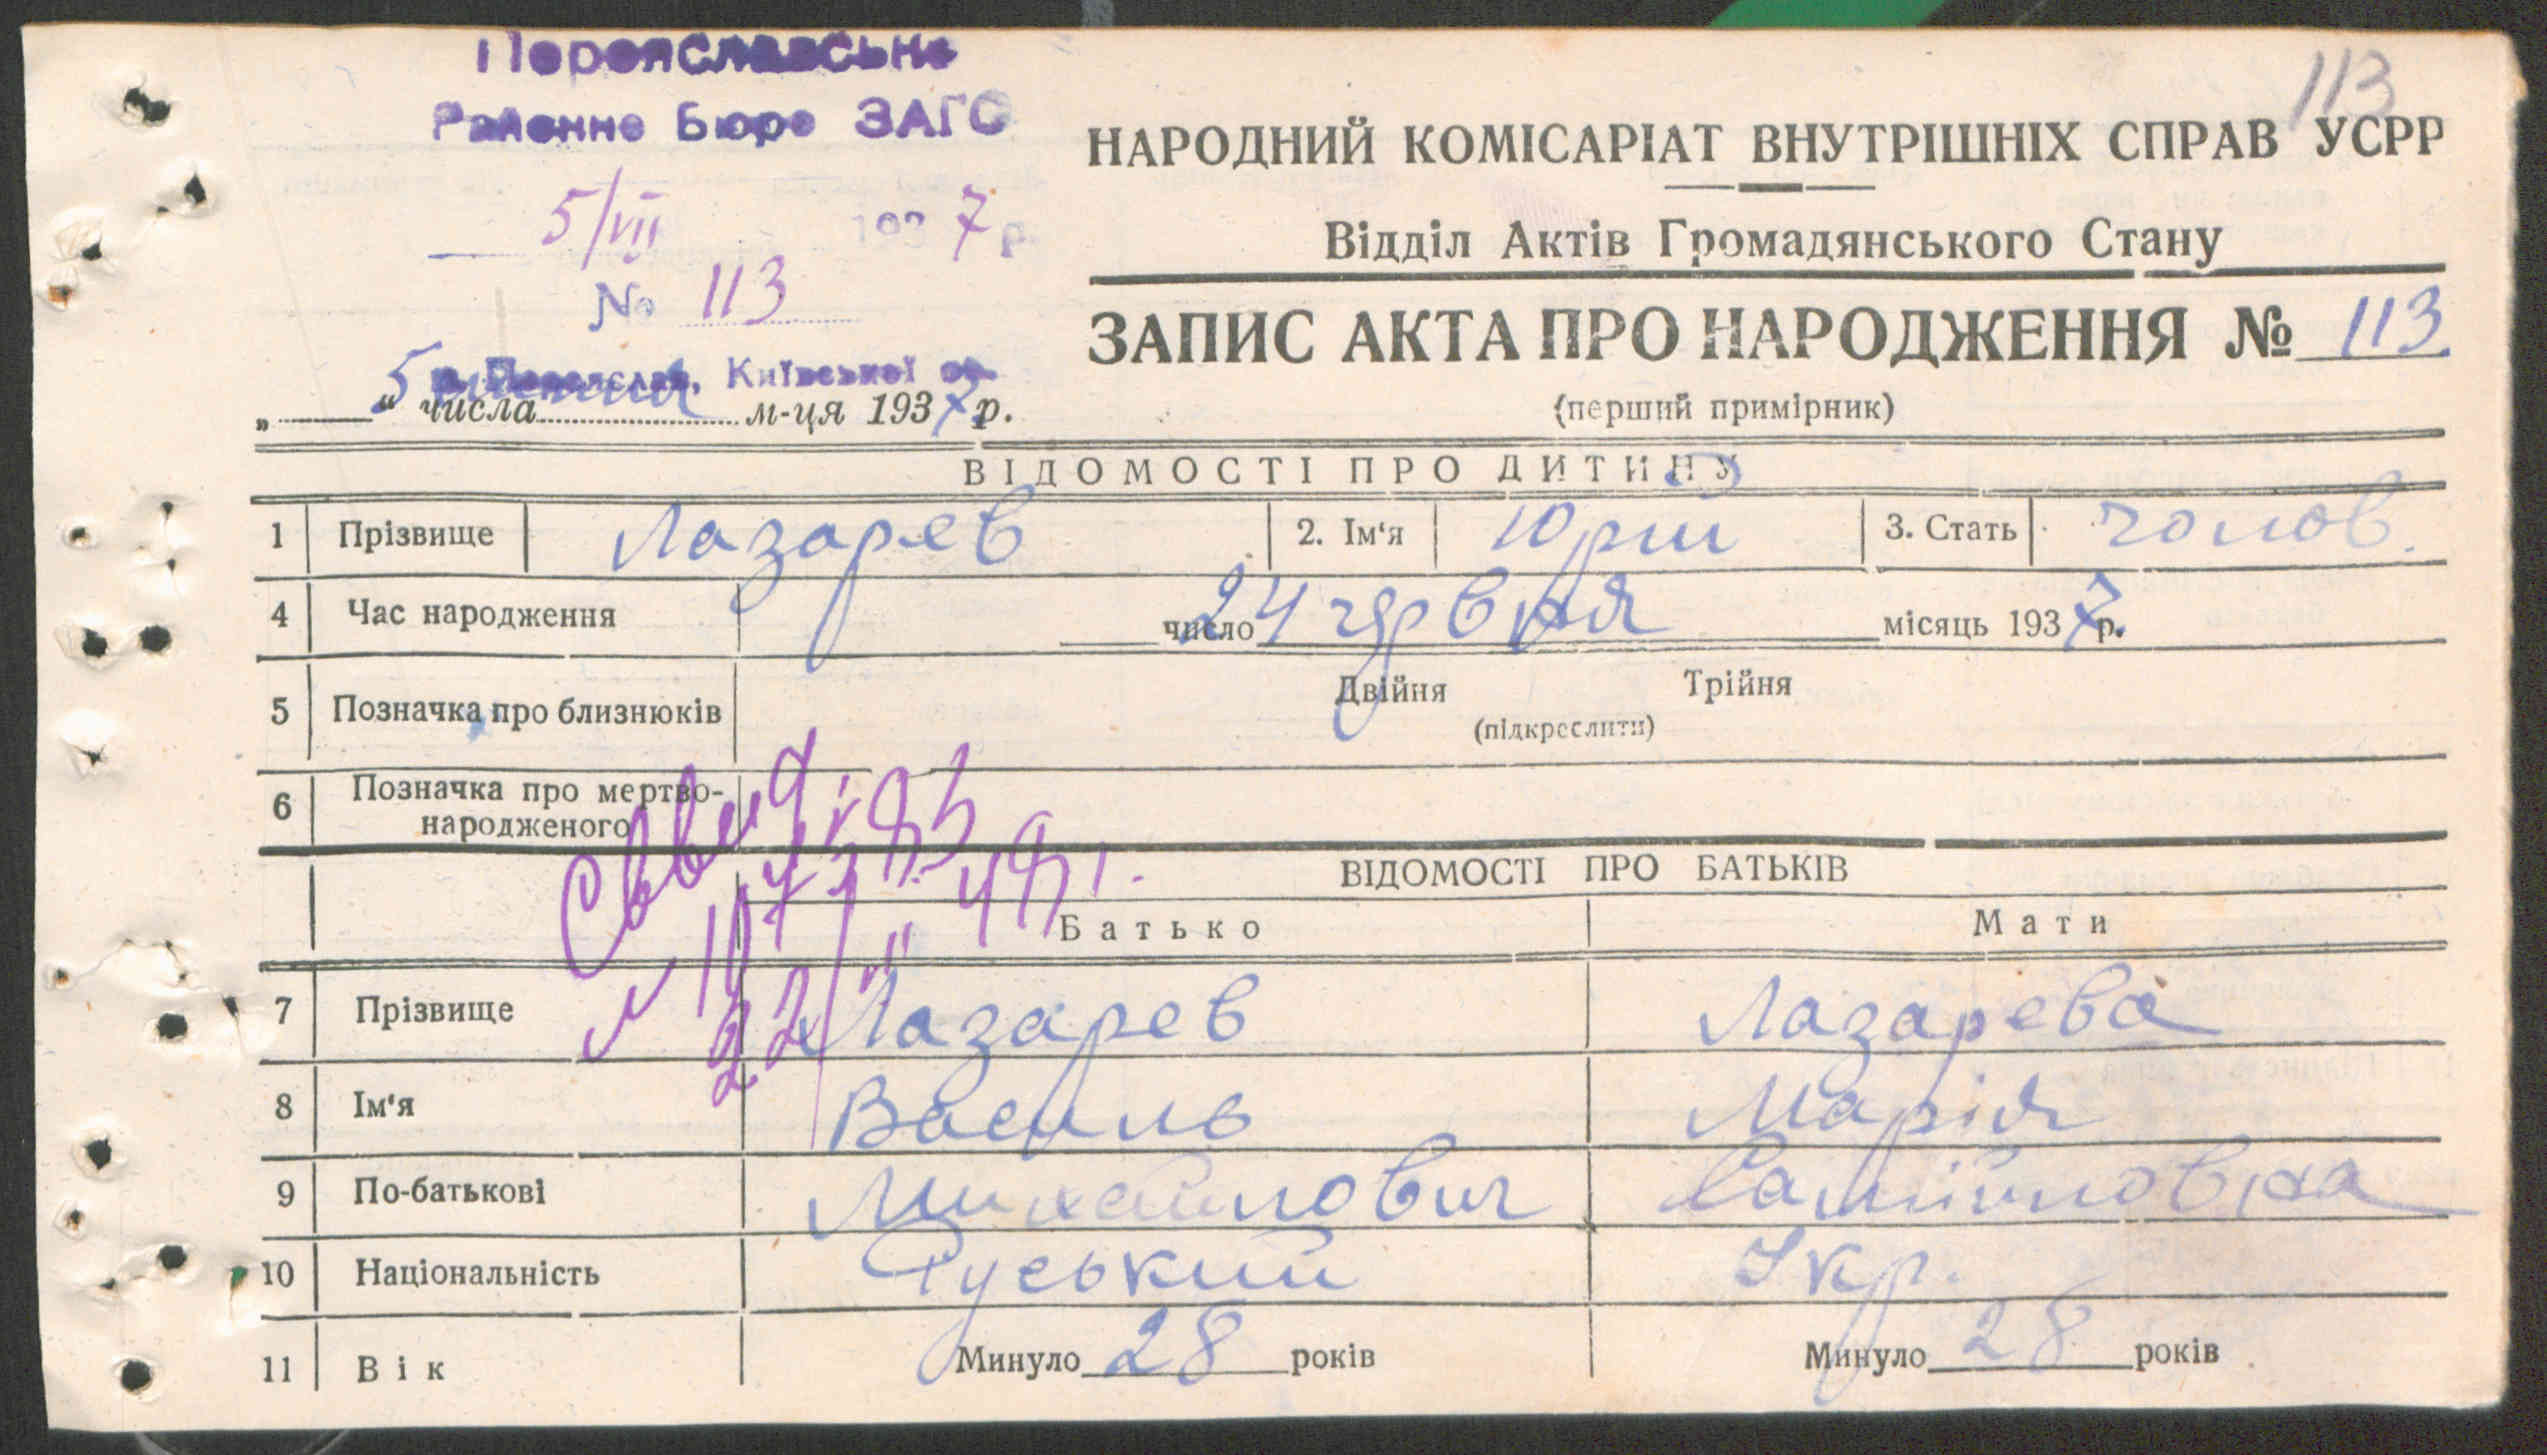 113
Переяславське
Районне Бюро ЗАГС
5/VII 1937 р.
№ 113
м. Переяслав, Київської об.
„ 5 “ числа липня м-ця 1937 р.
НАРОДНИЙ КОМІСАРІАТ ВНУТРІШНІХ СПРАВ УСРР
Відділ Актів Громадянського Стану
ЗАПИС АКТА ПРО НАРОДЖЕННЯ № 113
(перший примірник)
ВІДОМОСТІ ПРО ДИТИНУ
1 Прізвище Лазарев 2. Ім‘я Юрій 3. Стать чолов.
4 Час народження число 24 червня місяць 1937 р.
5 Позначка про близнюків Двійня Трійня
(підкреслити)
6 Позначка про мертво-
народженого
ВІДОМОСТІ ПРО БАТЬКІВ
Батько Мати
7 Прізвище Лазарев Лазарева
8 Ім‘я Василь Марія
9 По-батькові Михайлович Самійловна
10 Національність Руський Укр.
11 Вік Минуло 28 років Минуло 28 років